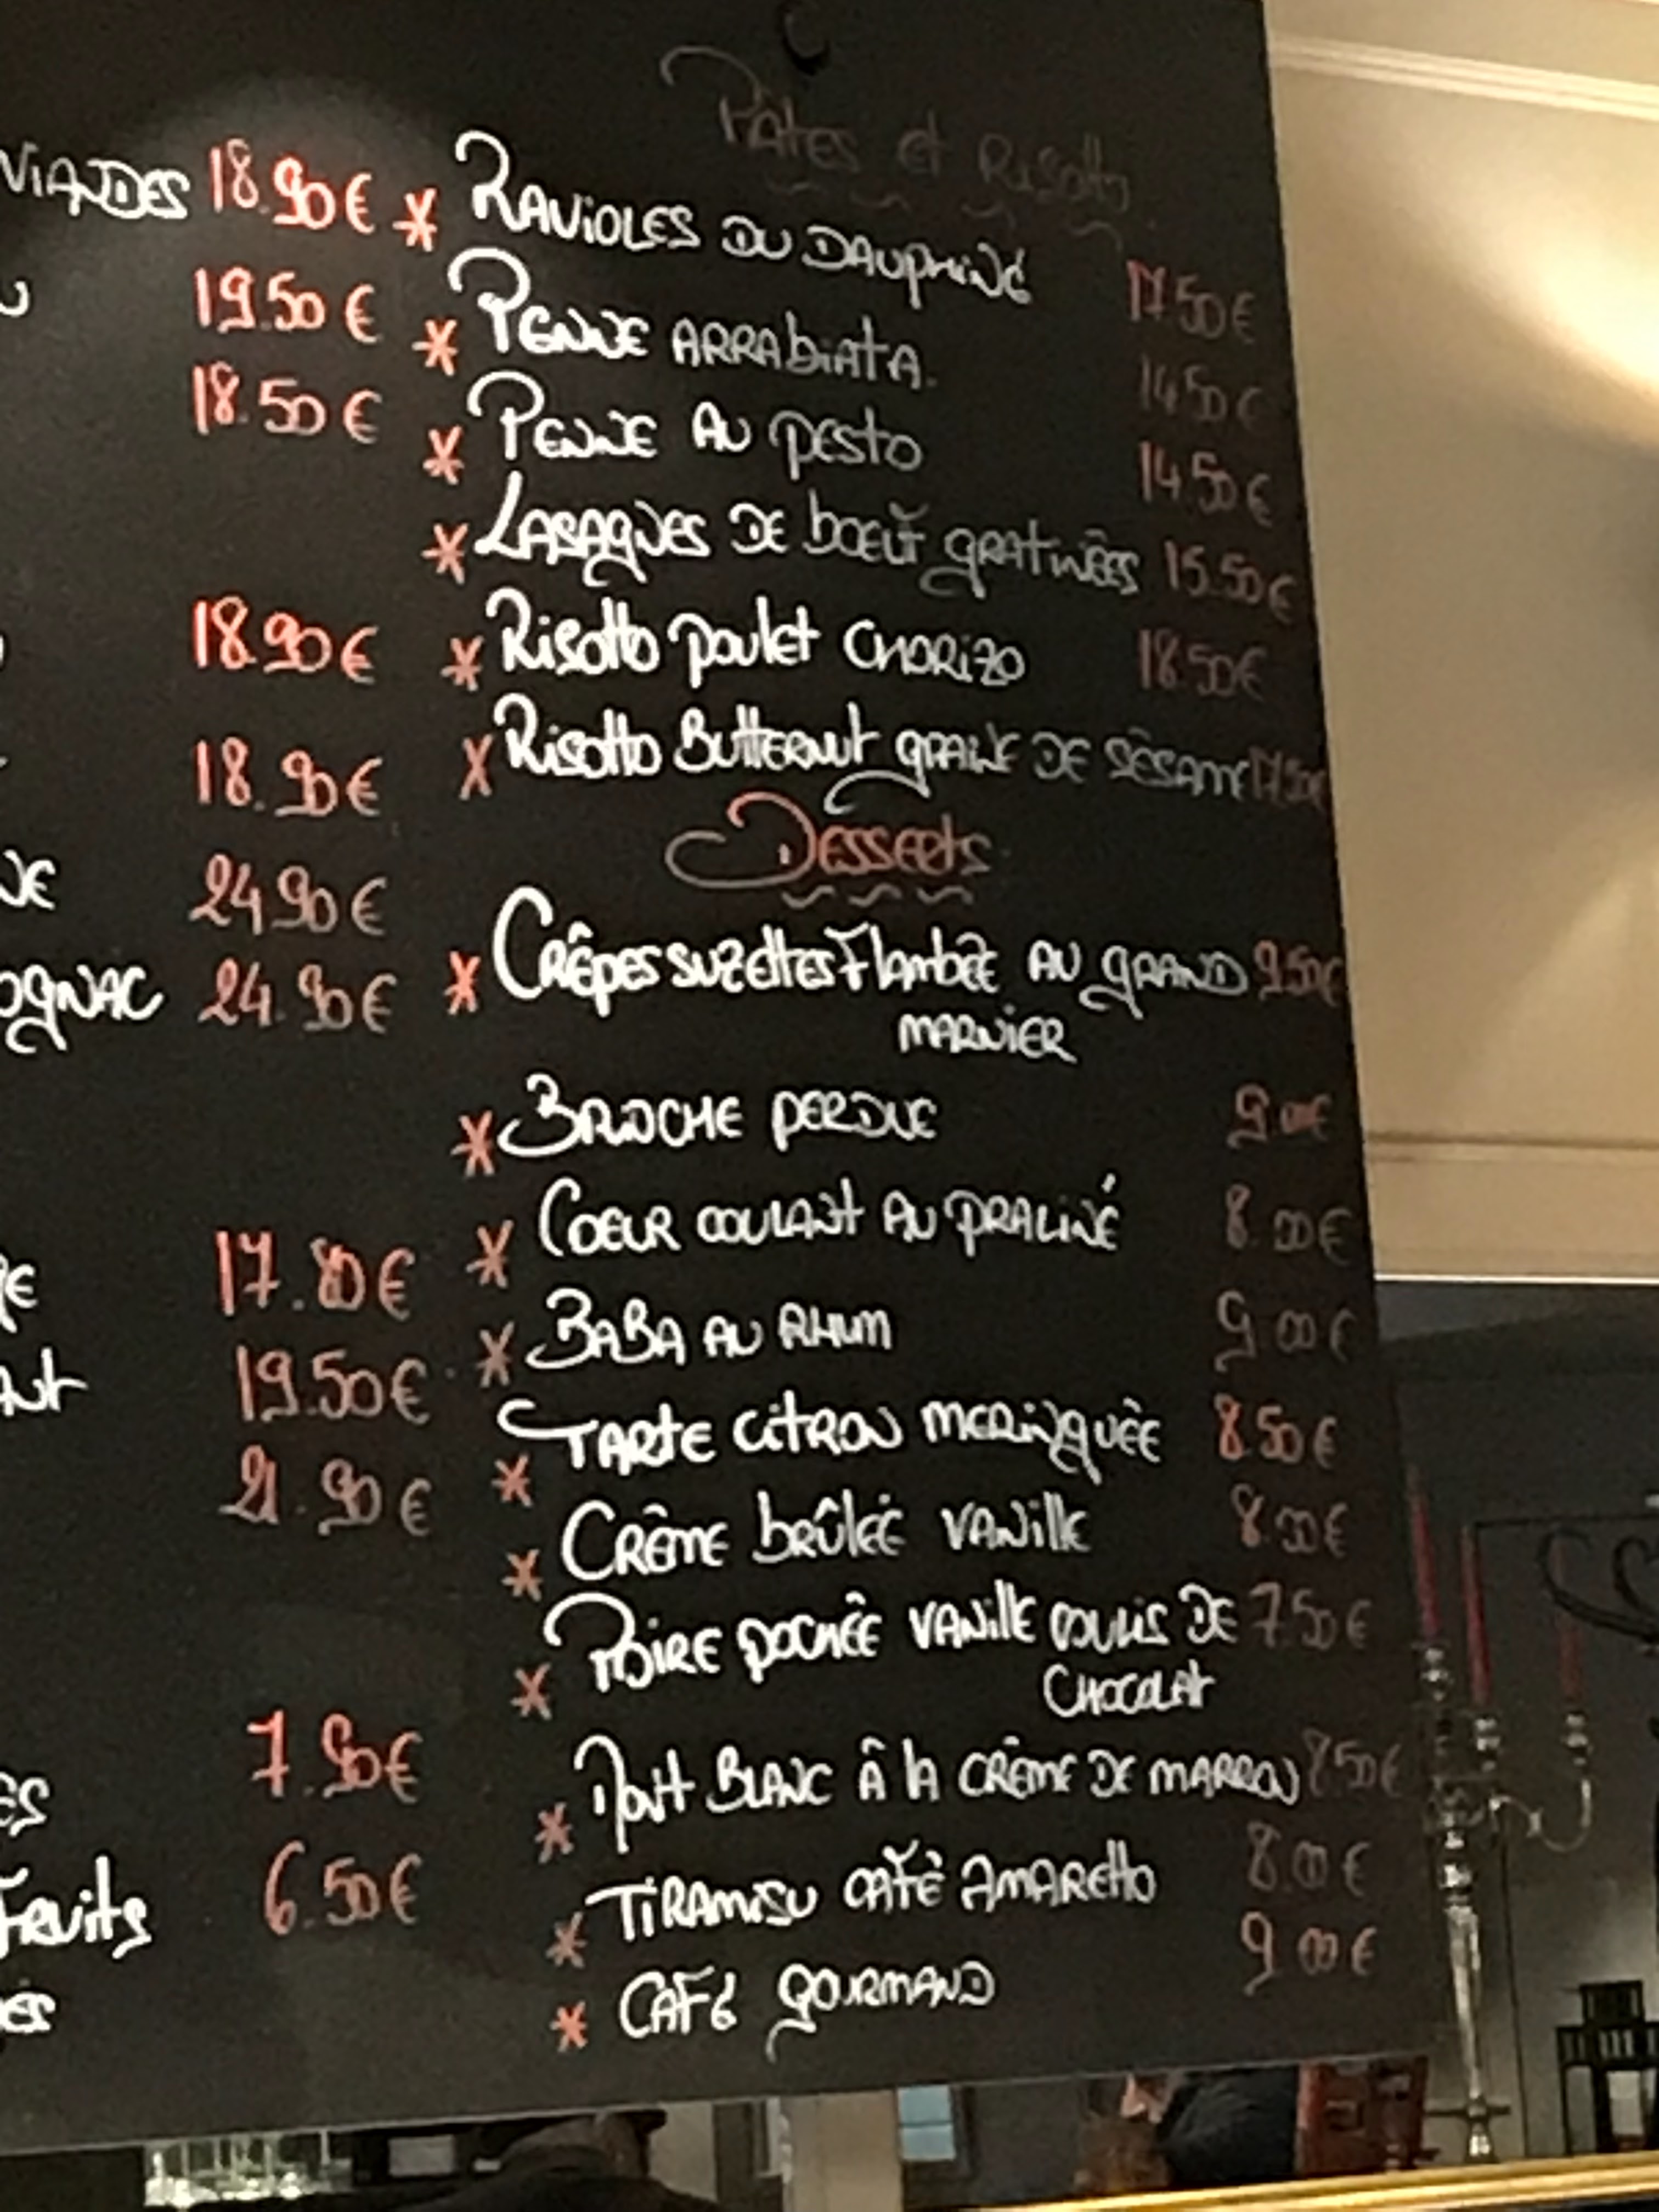 Pâtes et Risotto
VIANDES 18.90€ * RAVIOLES DU DAUPHINÉ 17.50€
19.50€ * PENNE ARRABIATA. 14.50€
18.50€ * PENNE AU PESTO 14.50€
* LASAGNES DE BŒUF GRATINÉES 15.50€
18.90€ * Risotto poulet CHORIZO 18.50€
18.90€ * Risotto Butternut GRAINE DE SÉSAME 17.50€
Desserts
24.90€
OGNAC 24.90€ * CRÊPES SUZETTES Flambée AU GRAND 9.50€
MARNIER
* BRIOCHE PERDUE 9.00€
17.80€ * COEUR COULANT AU PRALINÉ 8.00€
19.50€ * BABA AU RHUM 9.00€
21.90€ * TARTE CITRON MERINGUÉE 8.50€
* CRÊME BRÛLÉE VANILLE 8.00€
* POIRE POCHÉE VANILLE COULIS DE 7.50€
CHOCOLAT
7.90€ * MONT BLANC À LA CRÊME DE MARRON 8.50€
6.50€ * TIRAMISU CAFÉ AMARETTO 8.00€
Fruits
* CAFÉ GOURMAND 9.00€